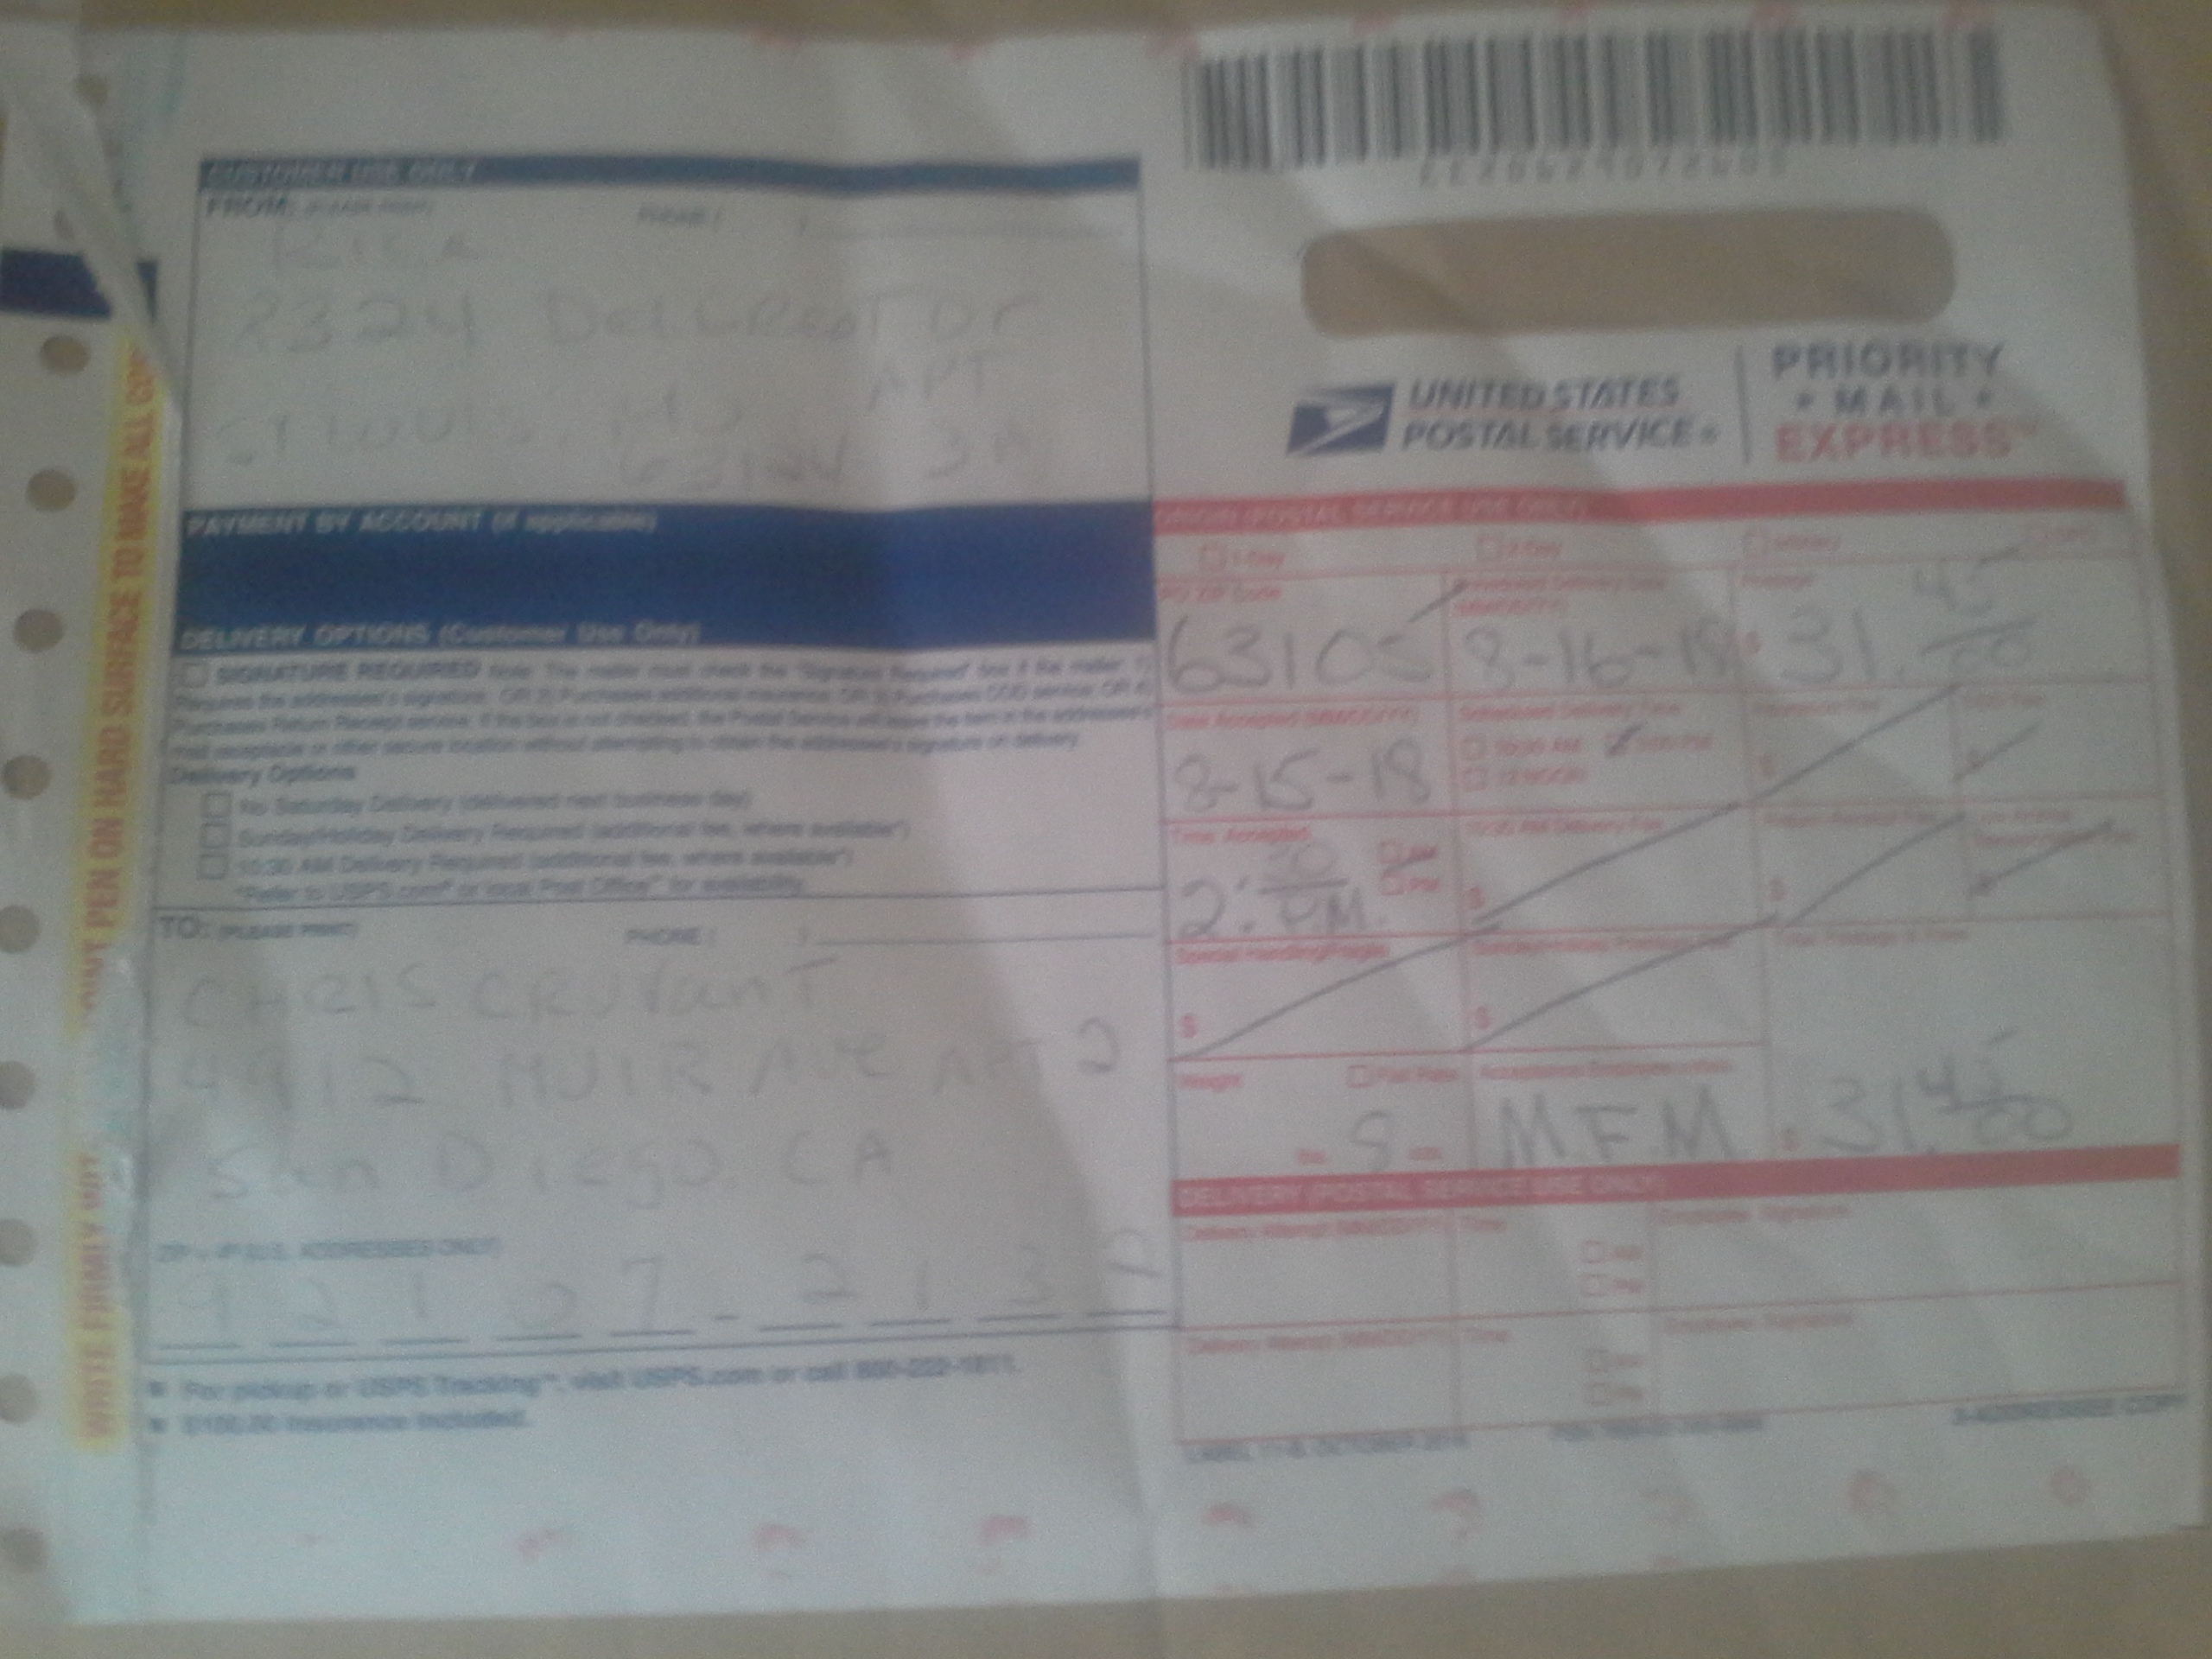 CUSTOMER USE ONLY
FROM: (PLEASE PRINT) PHONE (
2324
DR
APT
ST LOUIS, MO
3A
PAYMENT BY ACCOUNT (if applicable)
DELIVERY OPTIONS (Customer Use Only)
SIGNATURE REQUIRED Note: The mailer must check the "Signature Required" box if the mailer: 1)
Requires the addressee's signature; OR 2) Purchases additional insurance; OR 3) Purchases COD service; OR 4)
Purchases Return Receipt service. If the box is not checked, the Postal Service will leave the item in the addressee's
mail receptacle or other secure location without attempting to obtain the addressee's signature on delivery.
Delivery Options
No Saturday Delivery (delivered next business day)
Sunday/Holiday Delivery Required (additional fee, where available*)
10:30 AM Delivery Required (additional fee, where available*)
*Refer to USPS.com® or local Post Office™ for availability.
TO: (PLEASE PRINT) PHONE (
CHRIS
MUIR Ave APT 2
San Diego, CA
ZIP + 4® (U.S. ADDRESSES ONLY)
9 2 1 0 7 - 2 1 3
For pickup or USPS Tracking™, visit USPS.com or call 800-222-1811.
$100.00 Insurance Included.
UNITED STATES
POSTAL SERVICE®
PRIORITY
MAIL
EXPRESS™
ORIGIN (POSTAL SERVICE USE ONLY)
1-Day 2-Day Military DPO
PO ZIP Code Scheduled Delivery Date (MM/DD/YY) Postage
63105 8-16-18 $ 31.45/00
Date Accepted (MM/DD/YY) Scheduled Delivery Time Insurance Fee COD Fee
8-15-18 10:30 AM 3:00 PM 12 NOON $ $
Time Accepted AM PM 10:30 AM Delivery Fee Return Receipt Fee
2:30 PM. $ $
Special Handling/Fragile Sunday/Holiday Premium Fee Total Postage & Fees
$ $
Weight Flat Rate Acceptance Employee Initials
lbs. 8 ozs. M.F.M $ 31.45/00
DELIVERY (POSTAL SERVICE USE ONLY)
Delivery Attempt (MM/DD/YY) Time Employee Signature
AM
PM
Delivery Attempt (MM/DD/YY) Time Employee Signature
AM
PM
3-ADDRESSEE COPY
WRITE FIRMLY WITH
POINT PEN ON HARD SURFACE TO MAKE ALL COP